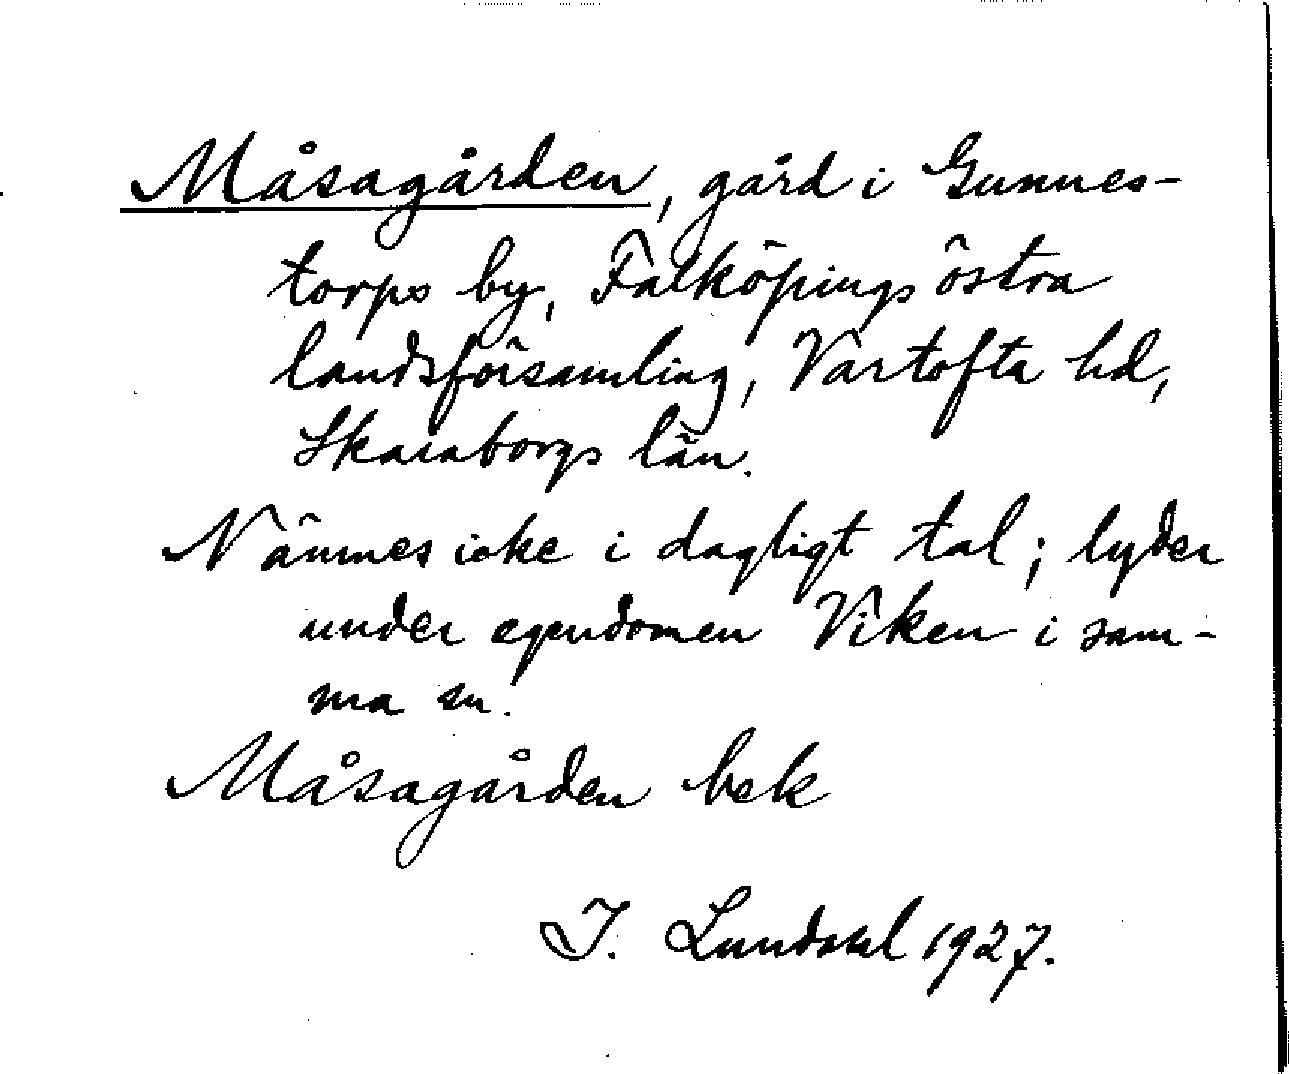 Måsagården, gård i Gunnes-
torps by, Falköpings östra
landsförsamling, Vartofta hd,
Skaraborgs län.
Nämnes icke i dagligt tal; lyder
under egendomen Viken i sam-
ma sn.
Måsagården bek
I. Lundahl 1927.